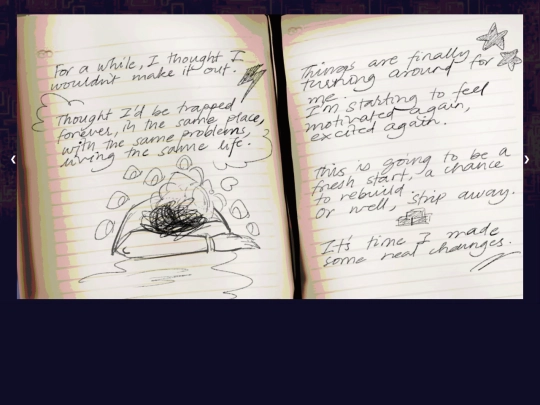 For a while, I thought I
wouldn't make it out.
Thought I'd be trapped
forever, in the same place,
with the same problems,
living the same life.
Things are finally
turning around for
me.
I'm starting to feel
motivated again,
excited again.
This is going to be a
fresh start, a chance
to rebuild.
Or well, strip away.
It's time I made
some real changes.